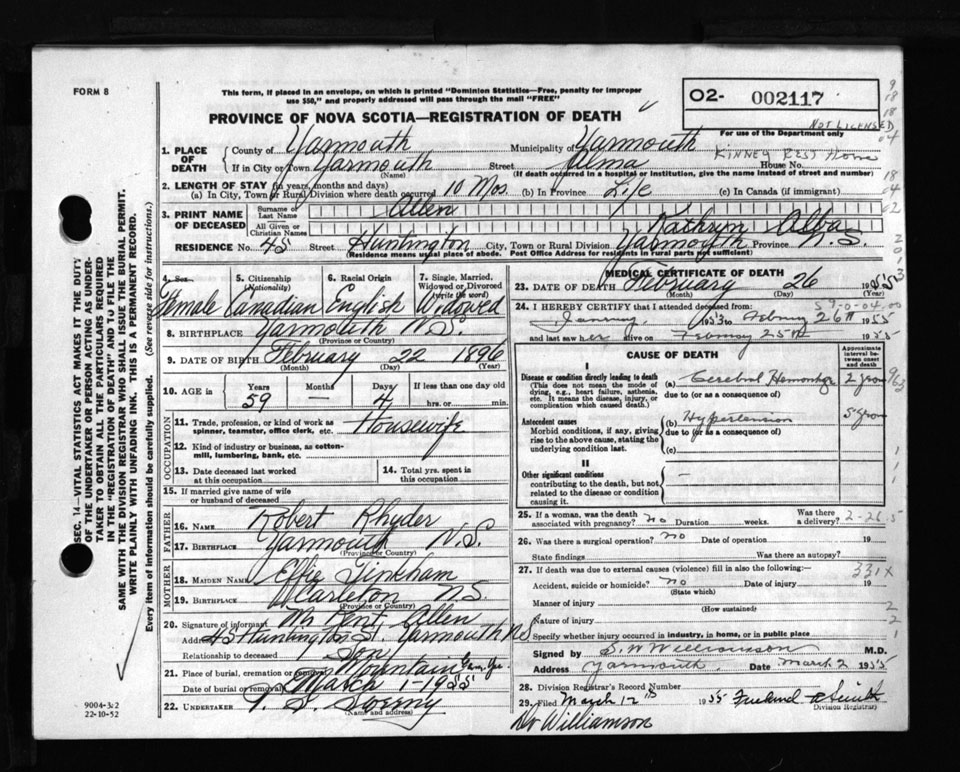 FORM 8
This form, if placed in an envelope, on which is printed "Dominion Statistics—Free, penalty for improper
use $50," and properly addressed will pass through the mail "FREE"
O2- 002117
NOT LICENSED
PROVINCE OF NOVA SCOTIA—REGISTRATION OF DEATH
For use of the Department only
1. PLACE OF DEATH
County of Yarmouth Municipality of Yarmouth
KINNEY REST Home
If in City or Town Yarmouth Street Alma House No.
(Name) (If death occurred in a hospital or institution, give the name instead of street and number)
2. LENGTH OF STAY (in years, months and days)
(a) In City, Town or Rural Division where death occurred 10 Mos. (b) In Province Life (c) In Canada (if immigrant)
3. PRINT NAME OF DECEASED
Surname or Last Name Allen
All Given or Christian Names Kathryn Alba
RESIDENCE No. 45 Street Huntington City, Town or Rural Division Yarmouth Province N.S.
(Residence means usual place of abode. Post Office Address for residents in rural parts not sufficient)
4. Sex 5. Citizenship (Nationality) 6. Racial Origin 7. Single, Married, Widowed or Divorced (write the word)
Female Canadian English Widowed
8. BIRTHPLACE Yarmouth N.S.
(Province or Country)
9. DATE OF BIRTH February 22 1896
(Month) (Day)
10. AGE in Years Months Days If less than one day old
59 — 4 hrs. or min.
OCCUPATION
11. Trade, profession, or kind of work as spinner, teamster, office clerk, etc. Housewife
12. Kind of industry or business, as cotton-mill, lumbering, bank, etc.
13. Date deceased last worked at this occupation
14. Total yrs. spent in this occupation
15. If married give name of wife or husband of deceased
FATHER
16. NAME Robert Rhyder
17. BIRTHPLACE Yarmouth N.S.
(Province or Country)
MOTHER
18. MAIDEN NAME Effie Tinkham
19. BIRTHPLACE Carleton N.S.
(Province or Country)
20. Signature of informant Kent Allen
Address 45 Huntington St. Yarmouth NS
Relationship to deceased Son
21. Place of burial, cremation or removal Mountain
Date of burial or removal March 1-1955
22. UNDERTAKER Sweeny
(Name and address)
MEDICAL CERTIFICATE OF DEATH
23. DATE OF DEATH February 26 1955
(Month) (Day)
24. I HEREBY CERTIFY that I attended deceased from:
1953 to 26th 1955
and last saw her alive on February 25th 1955
CAUSE OF DEATH
Approximate interval between onset and death
I
Disease or condition directly leading to death
(This does not mean the mode of dying, e.g., heart failure, asthenia, etc. It means the disease, injury, or complication which caused death.)
(a) Cerebral Hemorrhage
due to (or as a consequence of)
Antecedent causes
Morbid conditions, if any, giving rise to the above cause, stating the underlying condition last.
(b) Hypertension
due to (or as a consequence of)
(c)
II
Other significant conditions
contributing to the death, but not related to the disease or condition causing it.
25. If a woman, was the death associated with pregnancy? No Duration weeks. Was there a delivery?
2-26.5
26. Was there a surgical operation? no Date of operation 19
State findings Was there an autopsy?
27. If death was due to external causes (violence) fill in also the following:
331X
Accident, suicide or homicide? no Date of injury 19
(State which)
Manner of injury
(How sustained)
Nature of injury
Specify whether injury occurred in industry, in home, or in public place
Signed by S. W. Williamson M.D.
Address Yarmouth. Date March 2 1955
28. Division Registrar's Record Number
29. Filed March 12th 1955
Division Registrar
Dr Williamson
9004-3:2
22-10-52
SEC. 14—VITAL STATISTICS ACT MAKES IT THE DUTY
OF THE UNDERTAKER OR PERSON ACTING AS UNDER-
TAKER TO OBTAIN ALL THE PARTICULARS REQUIRED
IN THE "REGISTRATION OF DEATH" AND TO FILE THE
SAME WITH THE DIVISION REGISTRAR WHO SHALL ISSUE THE BURIAL PERMIT.
WRITE PLAINLY WITH UNFADING INK. THIS IS A PERMANENT RECORD.
Every item of information should be carefully supplied. (See reverse side for instructions.)